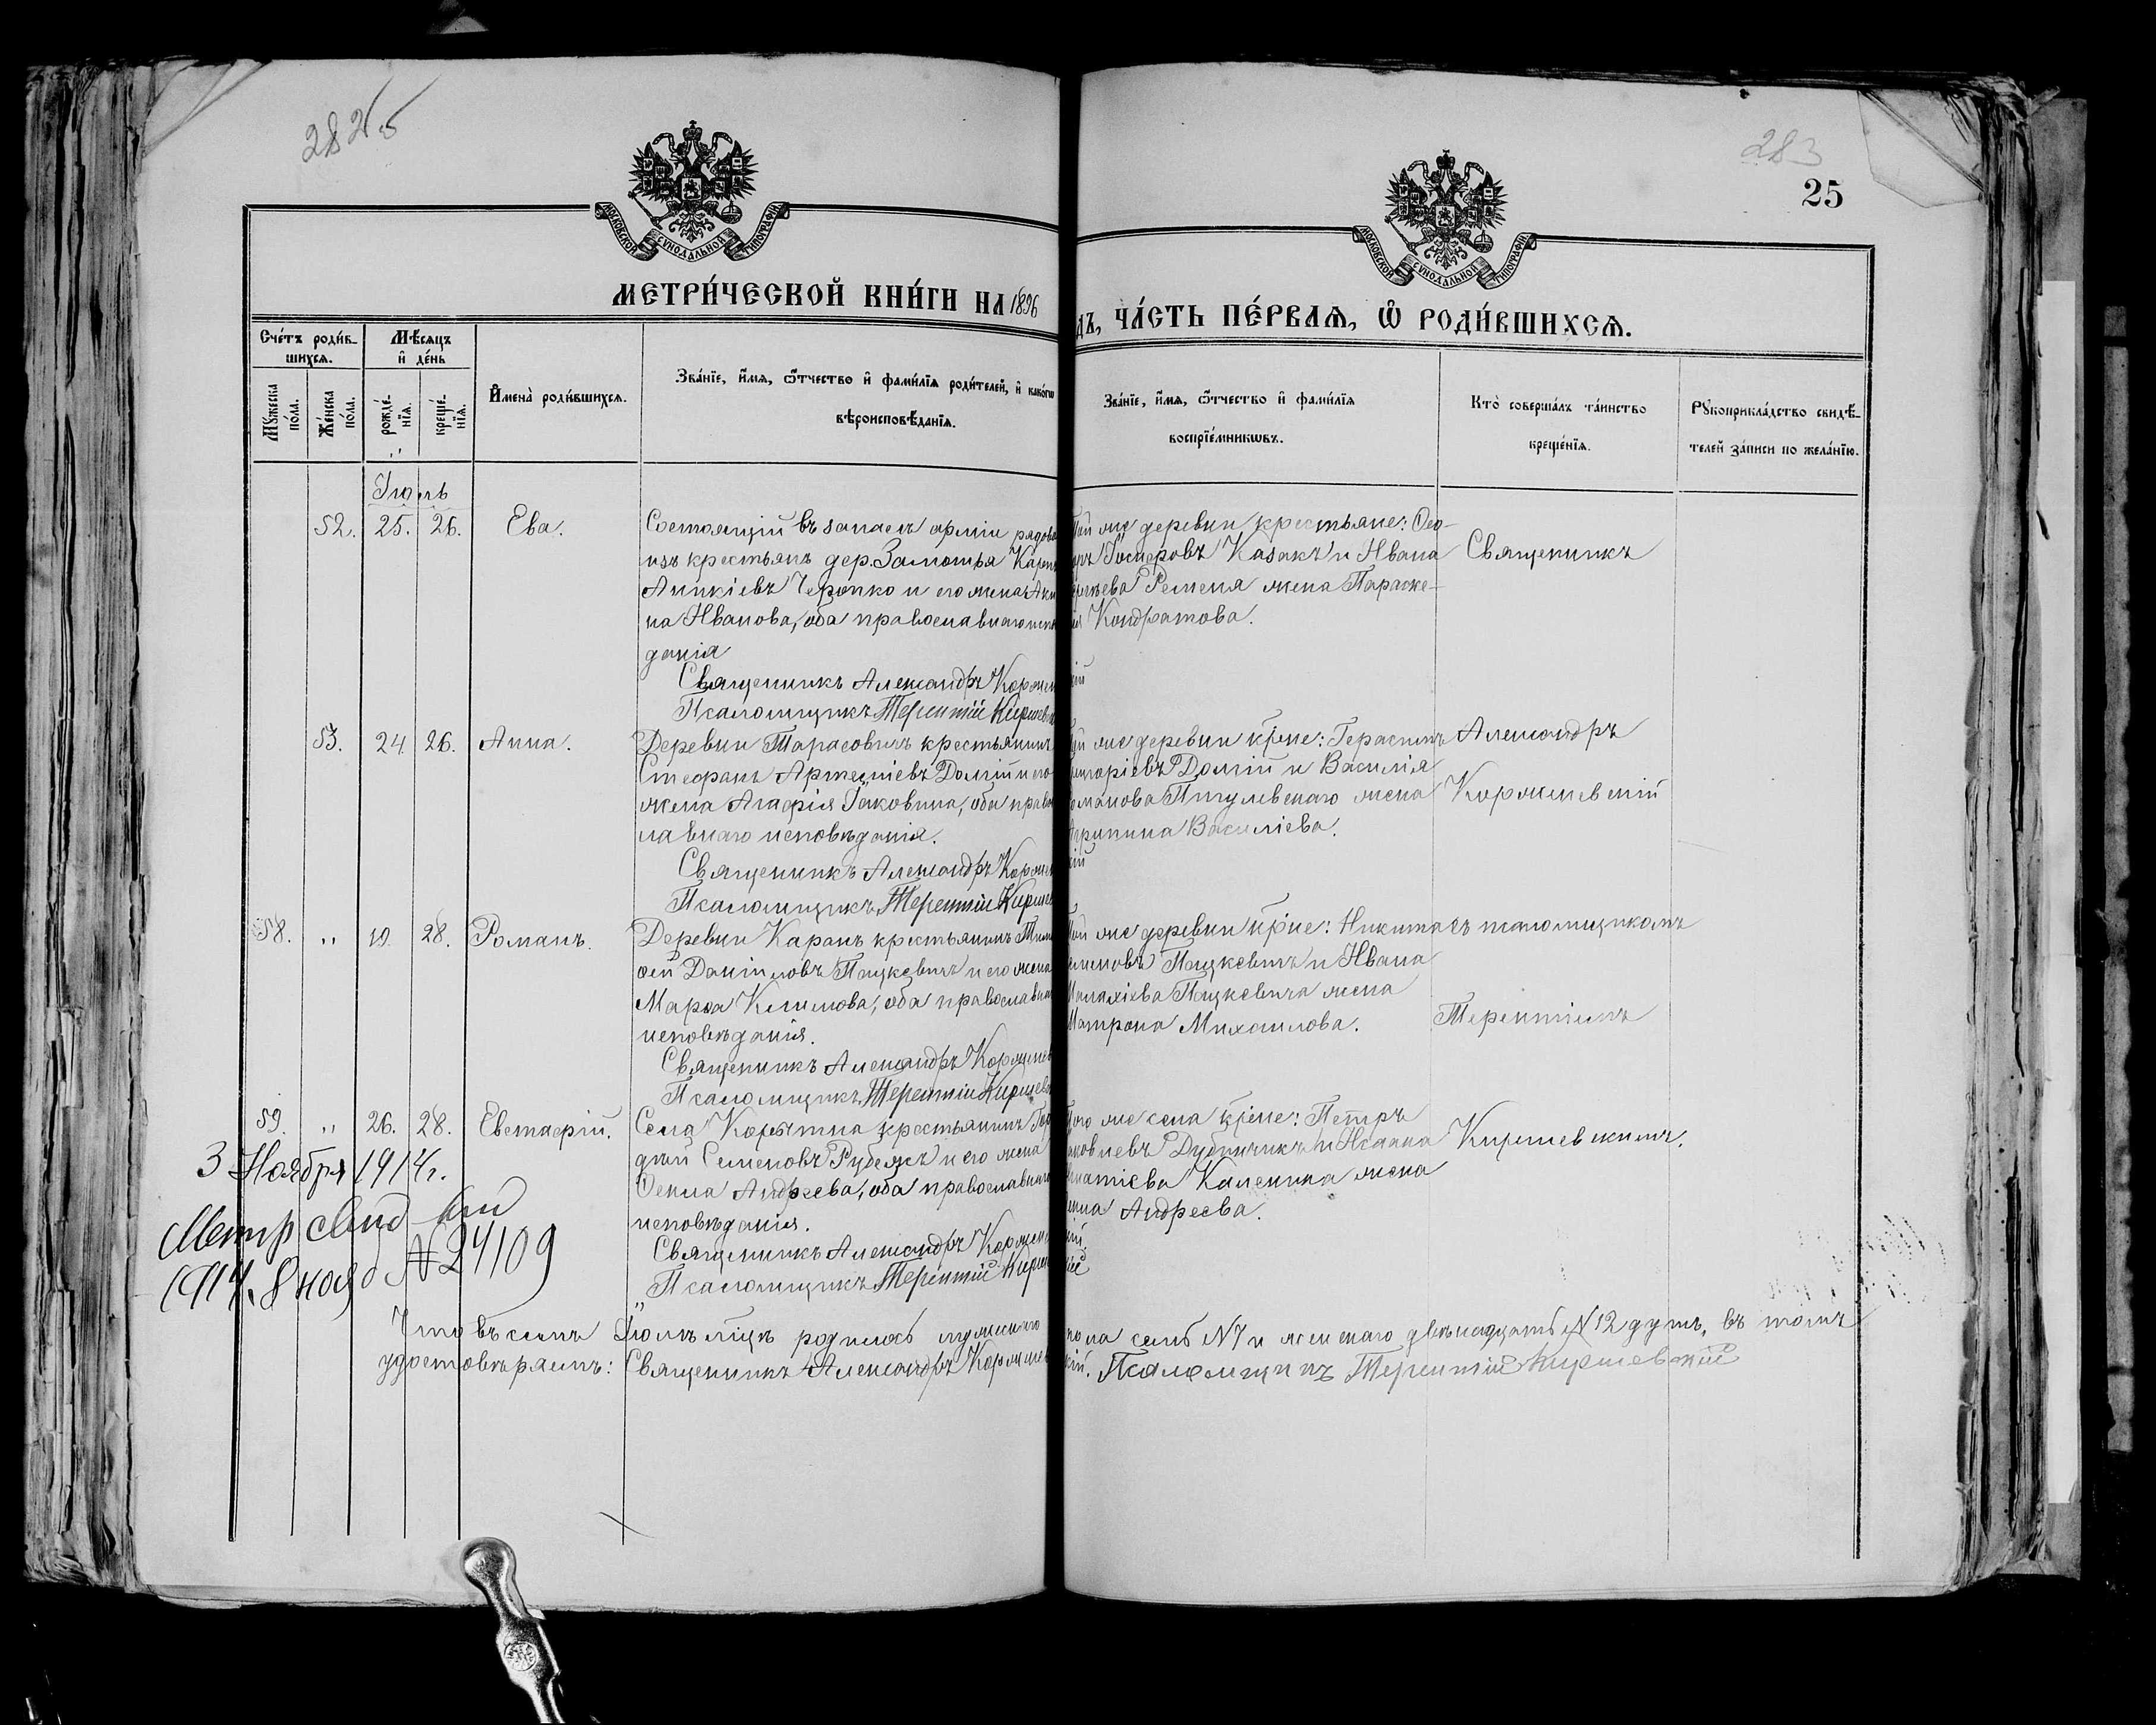 282 об
283
25
МОСКОВСКОЙ СѴНОДАЛЬНОЙ ТИПОГРАФІИ
МОСКОВСКОЙ СѴНОДАЛЬНОЙ ТИПОГРАФІИ
МЕТРИ́ЧЕСКОЙ КНИ́ГИ НА 1896
ДЪ, ЧА́СТЬ ПЕ́РВАѦ, Ѡ҆ РОДИ́ВШИХСѦ.
Сче́тъ роди́в-
шихсѧ.
Мѣ́сѧцъ
и҆ де́нь
Мꙋ́жеска
по́ла.
Же́нска
по́ла.
рожде́-
нїѧ.
креще́-
нїѧ.
И҆мена̀ роди́вшихсѧ.
Зва́нїе, и҆́мѧ, ѻ҆́тчество и҆ фами́лїѧ роди́телей, и҆ како́гѡ
вѣроисповѣ́данїѧ.
Зва́нїе, и҆́мѧ, ѻ҆́тчество и҆ фами́лїѧ
воспрїе́мникѡвъ.
Кто̀ соверша́лъ та́инство
креще́нїѧ.
Рꙋкоприкла́дство свидѣ́-
телей за́писи по жела́нїю.
Іюль
52. 25. 26. Ева.
Состоящій въ запасѣ арміи рядово
изъ крестьянъ дер. Замошья Карп
Аникіевъ Черопко и его жена Аки
на Иванова, оба православнаго испо
данія
Священникъ Александръ Корже
Псаломщикъ Терентій Киршев
той же деревни крестьяне: Ѳео-
Іосифовъ Казакъ и Ивана
Ременя жена Параске-
Кондратова.
Священникъ
53. 24. 26. Анна.
Деревни Тарасовичъ крестьянинъ
Стефанъ Артеміевъ Долгій и его
жена Агафія Іаковина, оба право
лавнаго исповѣданія.
Священникъ Александръ Корже
Псаломщикъ Терентій Кирше
же деревни кр-не: Герасимъ
григоріевъ Долгій и Василія
оманова Пигулевскаго жена
Василіева.
Александръ
Коржневскій
58. " 19. 28. Романъ.
Деревни Каранъ крестьянинъ Тим
ѳей Даніиловъ Пацкевичъ и его жена
Марѳа Климова, оба православна
исповѣданія.
Священникъ Александръ Коржнев
Псаломщикъ Терентій Киршев
той же деревни кр-не: Никита
Пацкевичъ и Ивана
Малахіева Пацкевича жена
Матрона Михаилова.
съ псаломщикомъ
Терентіемъ
59. " 26. 28. Евстафій.
Села Корытна крестьянинъ Гор
дѣй Семеновъ Рубежъ и его жена
Ѳекла Андреева, оба православнаго
исповѣданія.
Священникъ Александръ Коржне
Псаломщикъ Терентій Кирше
того же села кр-не: Петръ
Дубинчикъ и Иоанна
Игнатіева Каленика жена
Андреева.
Киршевскимъ.
3 Ноября 1914 г.
Метр свид
1914. 8 нояб № 24109
Что въ семъ Іюлѣ м-цѣ родилось мужескаго пола семь № 7 и женскаго двѣнадцать № 12 душъ, въ томъ
удостовѣряемъ: Священникъ Александръ Коржневскій. Псаломщикъ Терентій Киршевскій